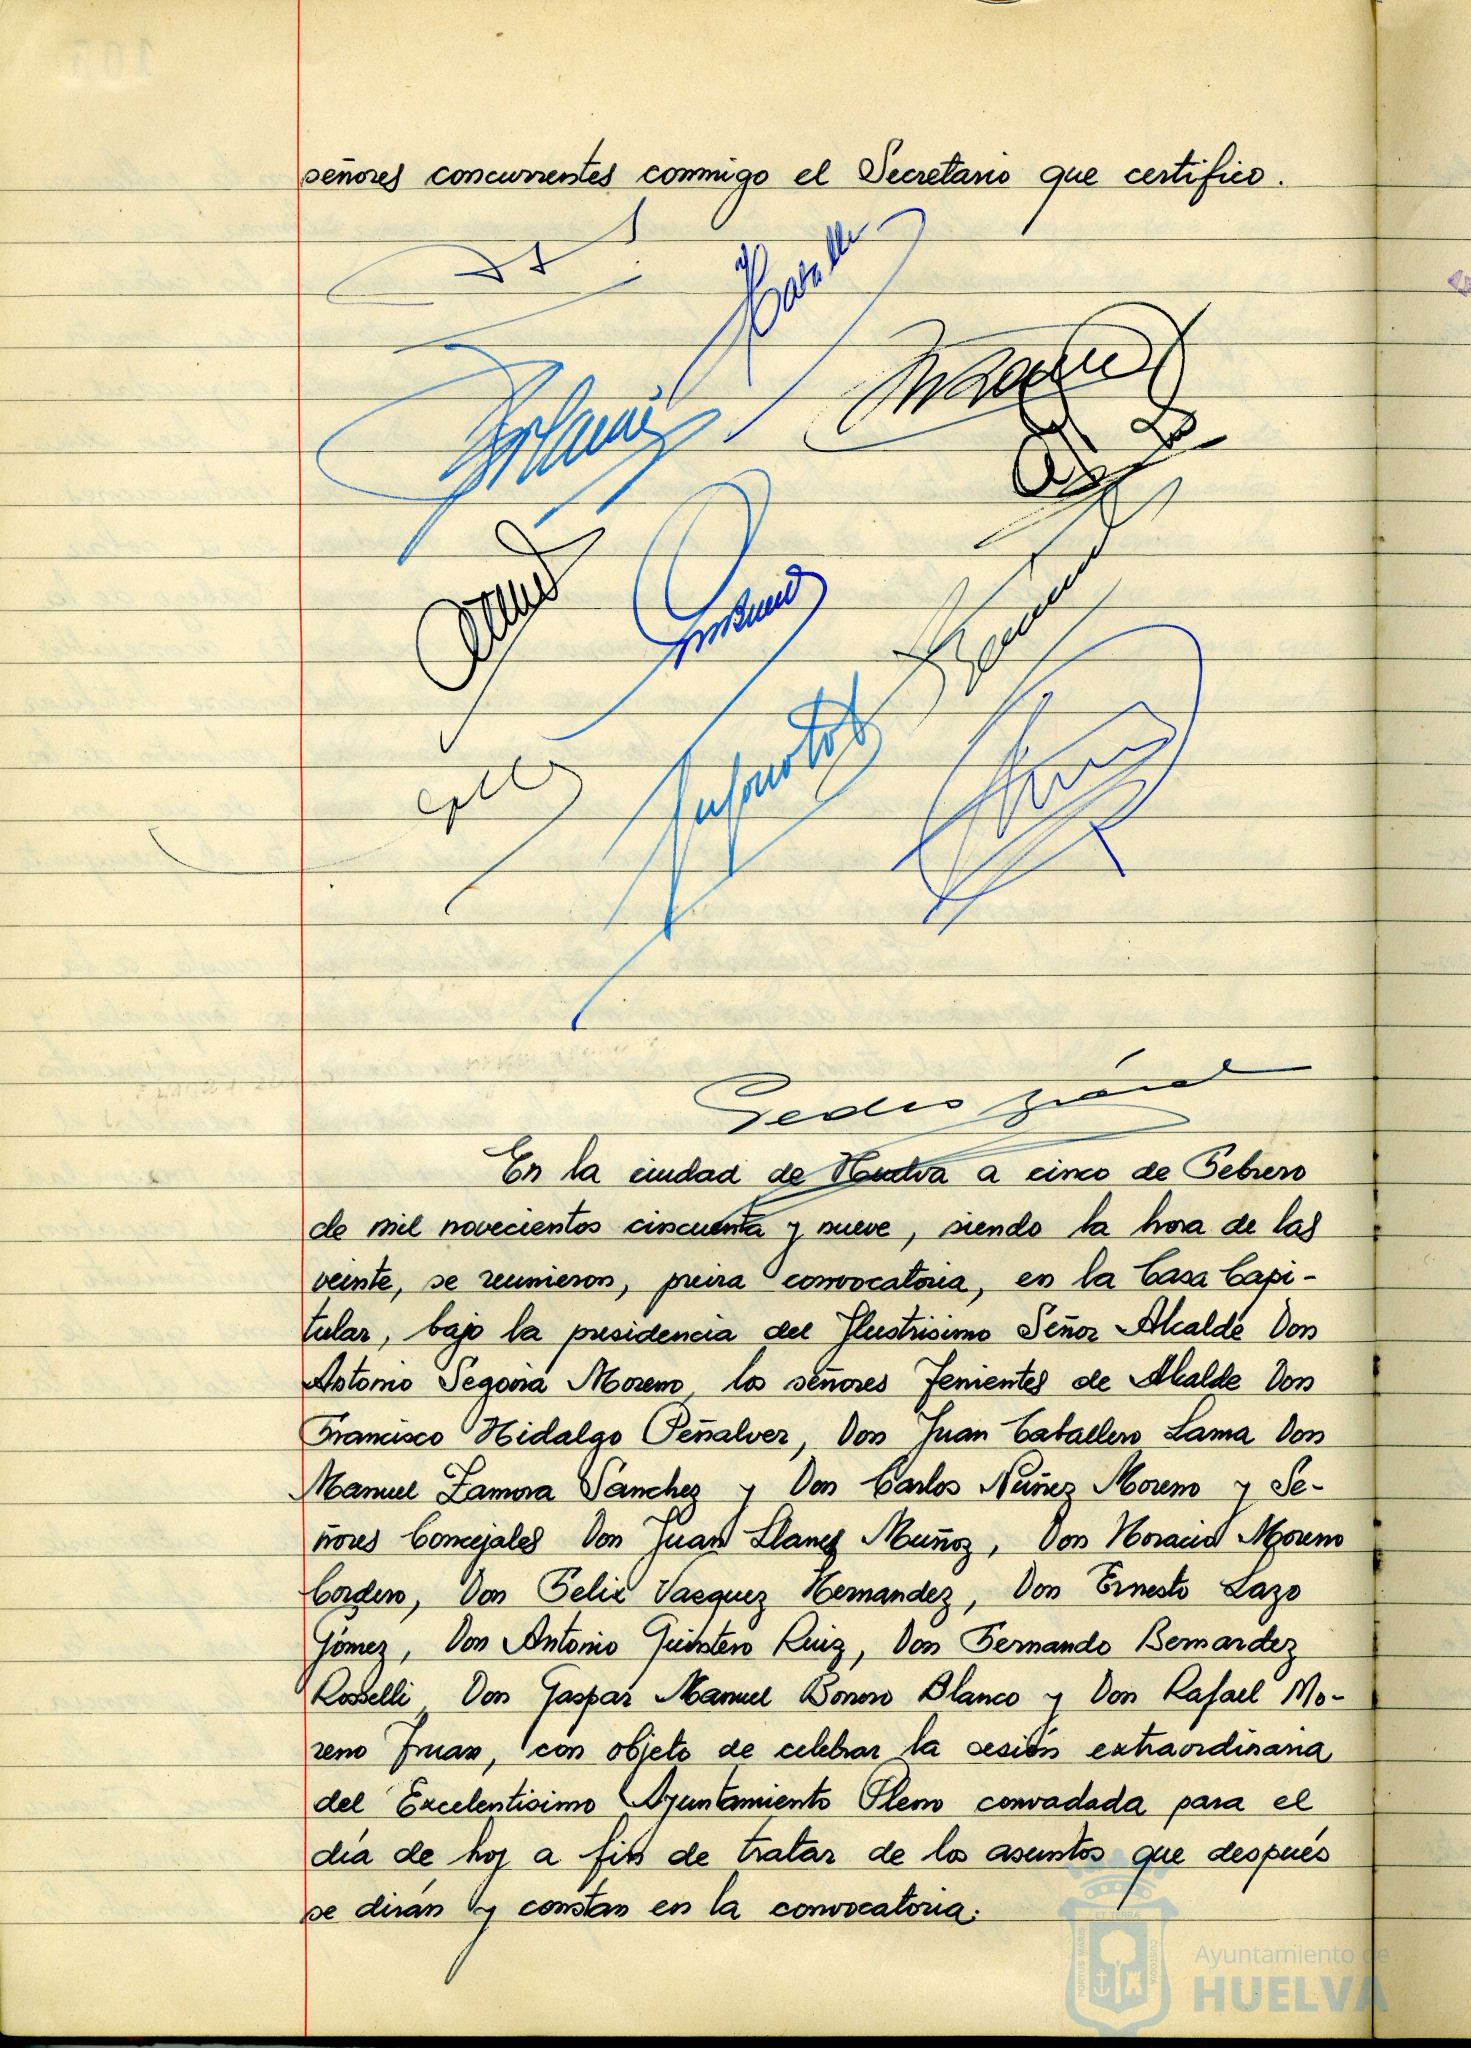 señores concurrentes conmigo el Secretario que certifico.
En la ciudad de Huelva a cinco de Febrero
de mil novecientos cincuenta y nueve, siendo la hora de las
veinte, se reunieron, preira convocatoria, en la Casa Capi-
tular, bajo la presidencia del Ilustrisimo Señor Alcalde Don
Antonio Segovia Moreno, los señores Tenientes de Alcalde Don
Francisco Hidalgo Peñalver, Don Juan Caballero Lama Don
Manuel Zamora Sanchez y Don Carlos Nuñez Moreno y Se-
ñores Concejales Don Juan Llanes Muñoz, Don Horacio Moreno
Cordero, Don Felix Vazquez Hernandez, Don Ernesto Lazo
Gómez, Don Antonio Quintero Ruiz, Don Fernando Bernardez
Rosselli, Don Gaspar Manuel Bonoso Blanco y Don Rafael Mo-
reno con objeto de celebrar la sesión extraordinaria
del Excelentisimo Ayuntamiento Pleno convadada para el
día de hoy a fin de tratar de los asuntos que después
se dirán y constan en la convocatoria.
PORTUS MARIS ET TERRA CUSTODIA
Ayuntamiento de
HUELVA